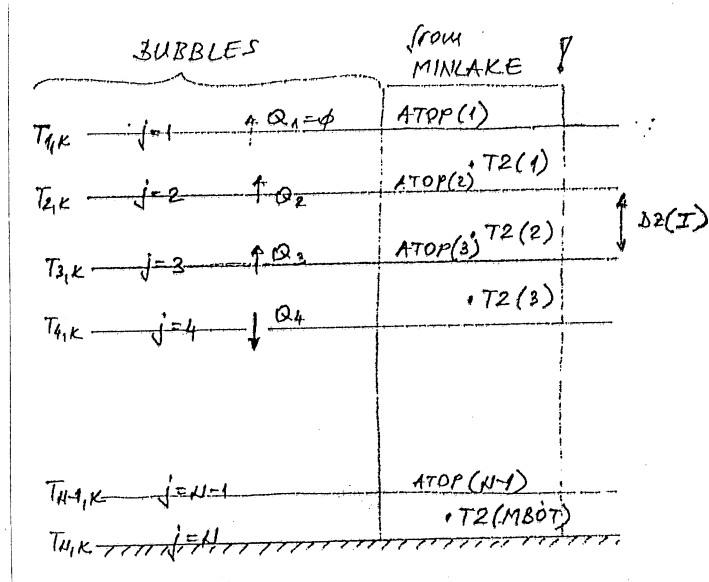 BUBBLES
from
MINLAKE
T1,K j=1 Q1=φ ATOP(1)
T2(1)
T2,K j=2 Q2 ATOP(2)
DZ(I)
T2(2)
T3,K j=3 Q3 ATOP(3)
T2(3)
T4,K j=4 Q4
TN-1,K j=N-1 ATOP(N-1)
T2(MBOT)
TN,K j=N